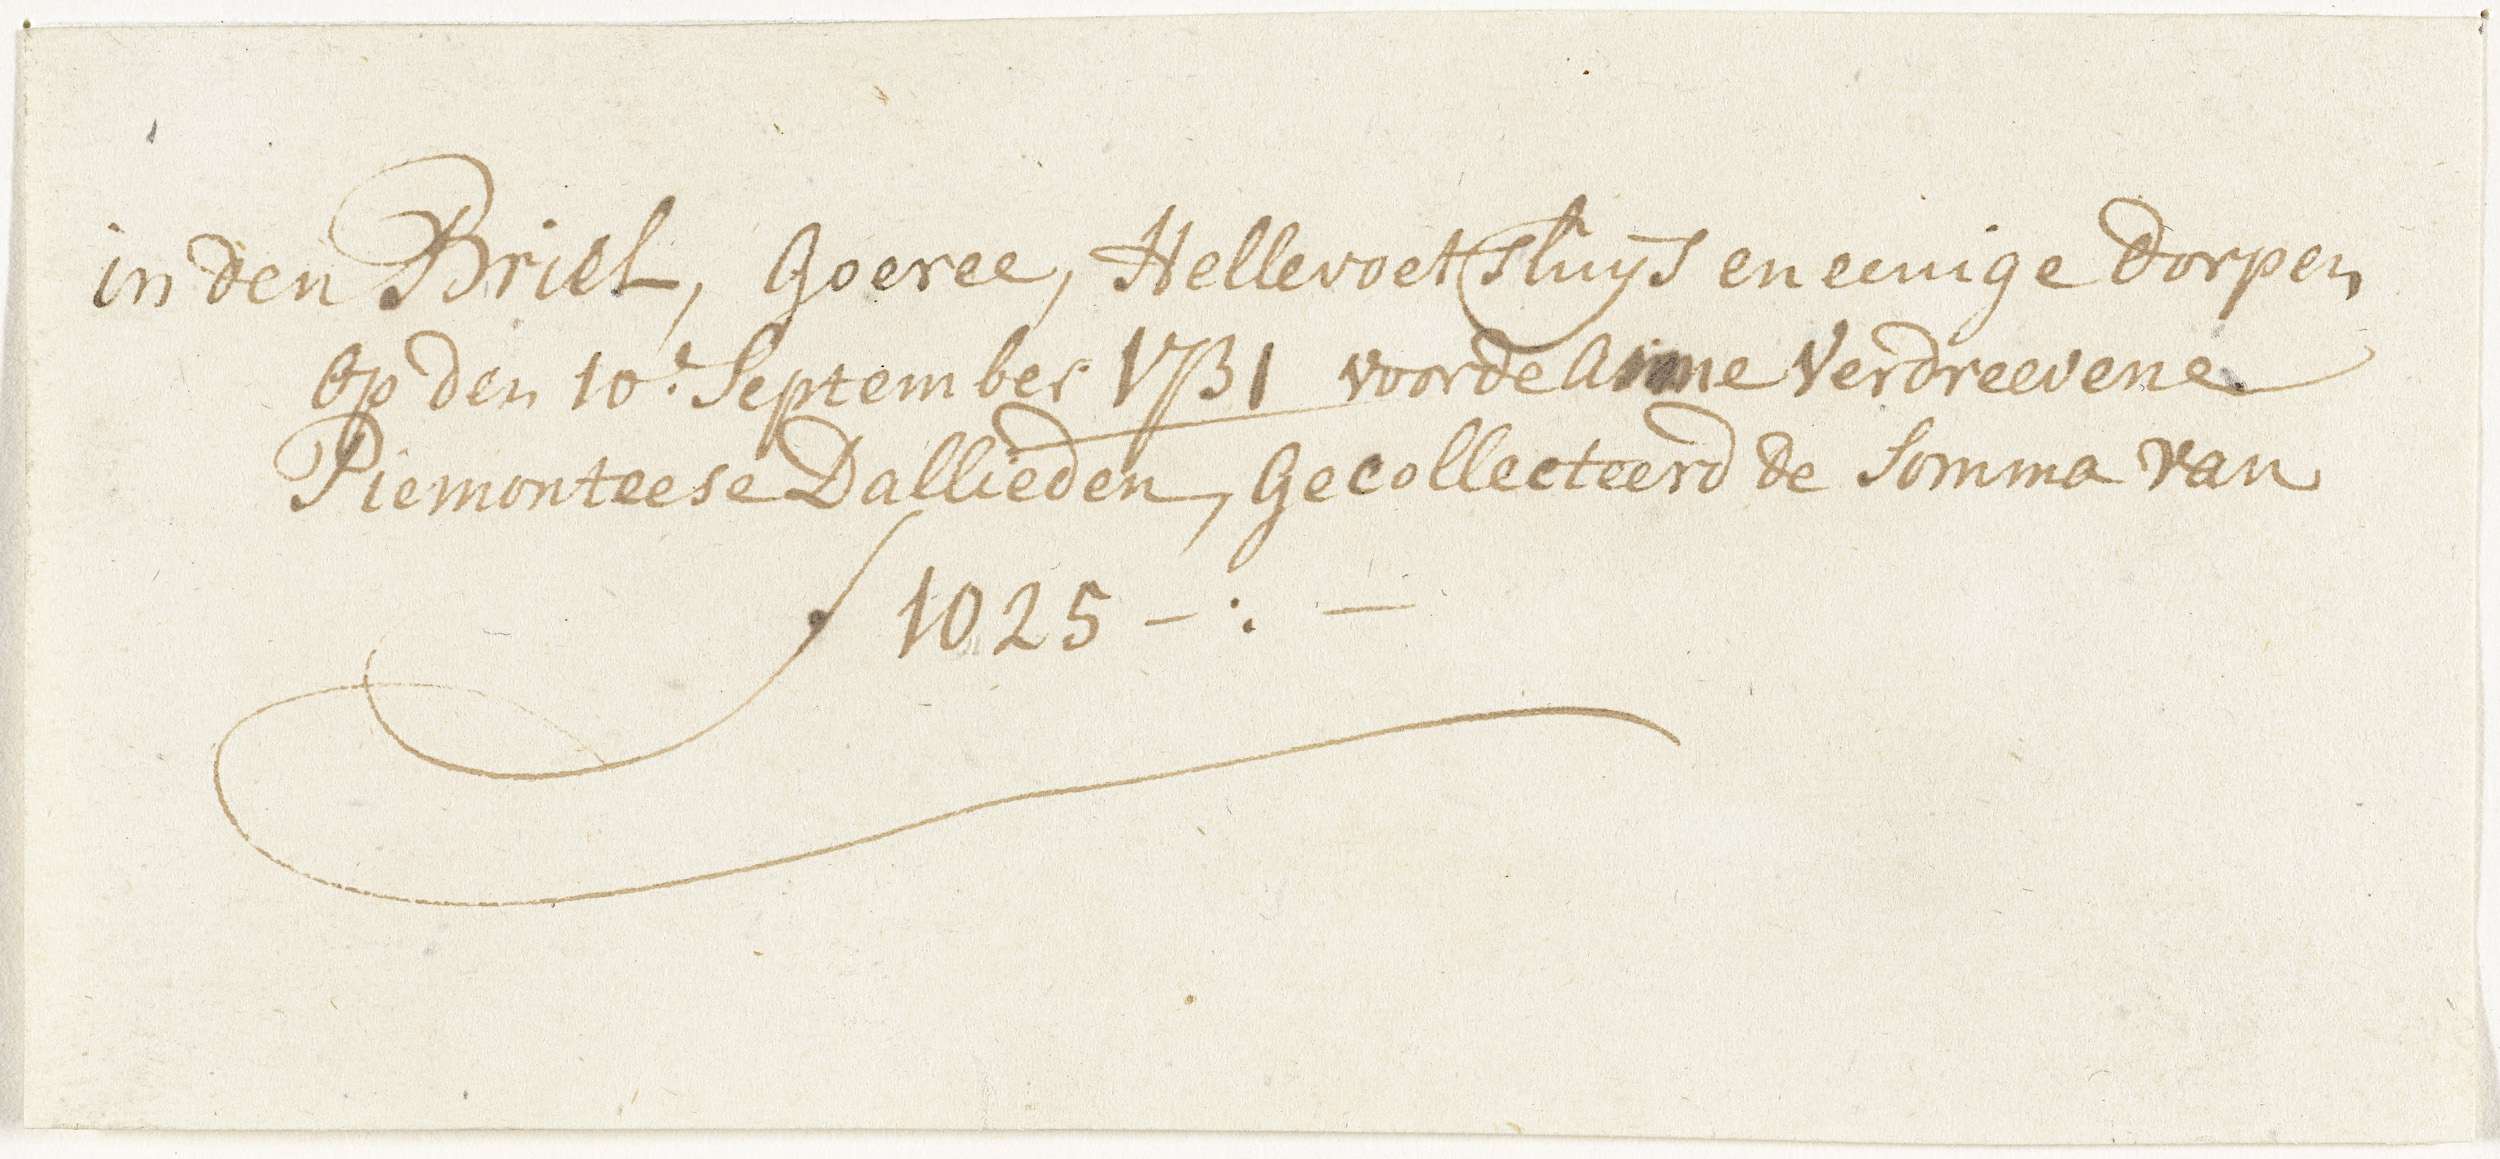 in den Briel, Goeree, Hellevoetsluys en eenige dorpen
op den 10.e September 1731 voor de Arme Verdreevene
Piemonteese Dallieden, Gecollecteerd de Somma van
ƒ 1025 - : -